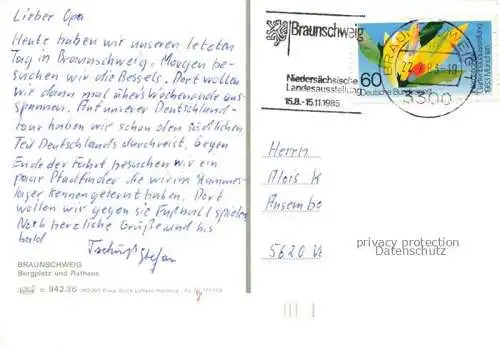 Lieber Opa
Heute haben wir unseren letzten
Tag in Braunschweig. Morgen be-
suchen wir die Bessels. Dort wollen
wir dann mal übers Wochenende aus-
spannen. Auf unserer Deutschland-
tour haben wir schon den südlichen
Teil Deutschlands durchreist. Gegen
Ende der Fahrt besuchen wir ein
paar Pfadfinder die wir im Stammes-
lager kennengelernt haben. Dort
wollen wir gegen sie Fußball spielen
Noch herzliche Grüße und bis
bald Tschüß Stefan
BRAUNSCHWEIG
Burgplatz und Rathaus
D 942.36
Braunschweig
Niedersächsische
Landesausstellung
15.8.-15.11.1985
60
Deutsche Bundespost
3300
Herrn
Alois K
5620
privacy protection
Datenschutz